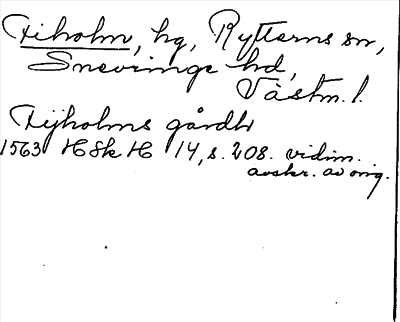 Fiholm, hg, Rytterns sn,
Snevringe hd,
Västm. l.
Fijholms gårdh
1563 HSkH 14, s. 208. vidim.
avskr. av orig.